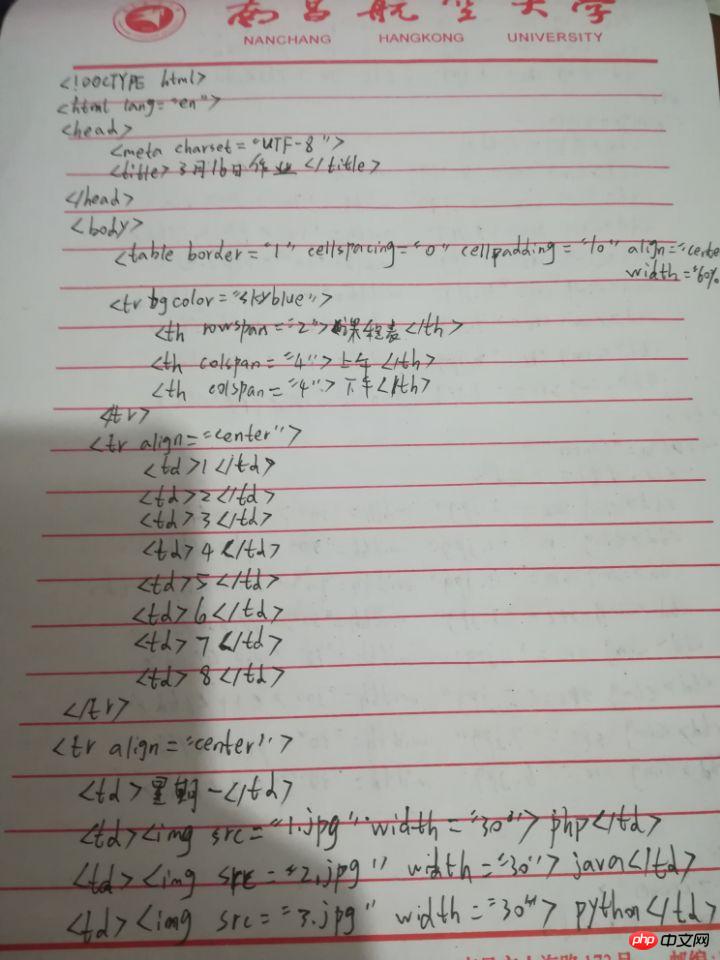 南昌航空大学
NANCHANG HANGKONG UNIVERSITY
<!DOCTYPE html>
<html lang="en">
<head>
<meta charset="UTF-8">
<title>3月16日作业</title>
</head>
<body>
<table border="1" cellspacing="0" cellpadding="10" align="cente
width="60%
<tr bgcolor="skyblue">
<th rowspan="2">课程表</th>
<th colspan="4">上午</th>
<th colspan="4">下午</th>
</tr>
<tr align="center">
<td>1</td>
<td>2</td>
<td>3</td>
<td>4</td>
<td>5</td>
<td>6</td>
<td>7</td>
<td>8</td>
</tr>
<tr align="center">
<td>星期一</td>
<td><img src="1.jpg" width="30">php</td>
<td><img src="2.jpg" width="30">java</td>
<td><img src="3.jpg" width="30">python</td>
php 中文网